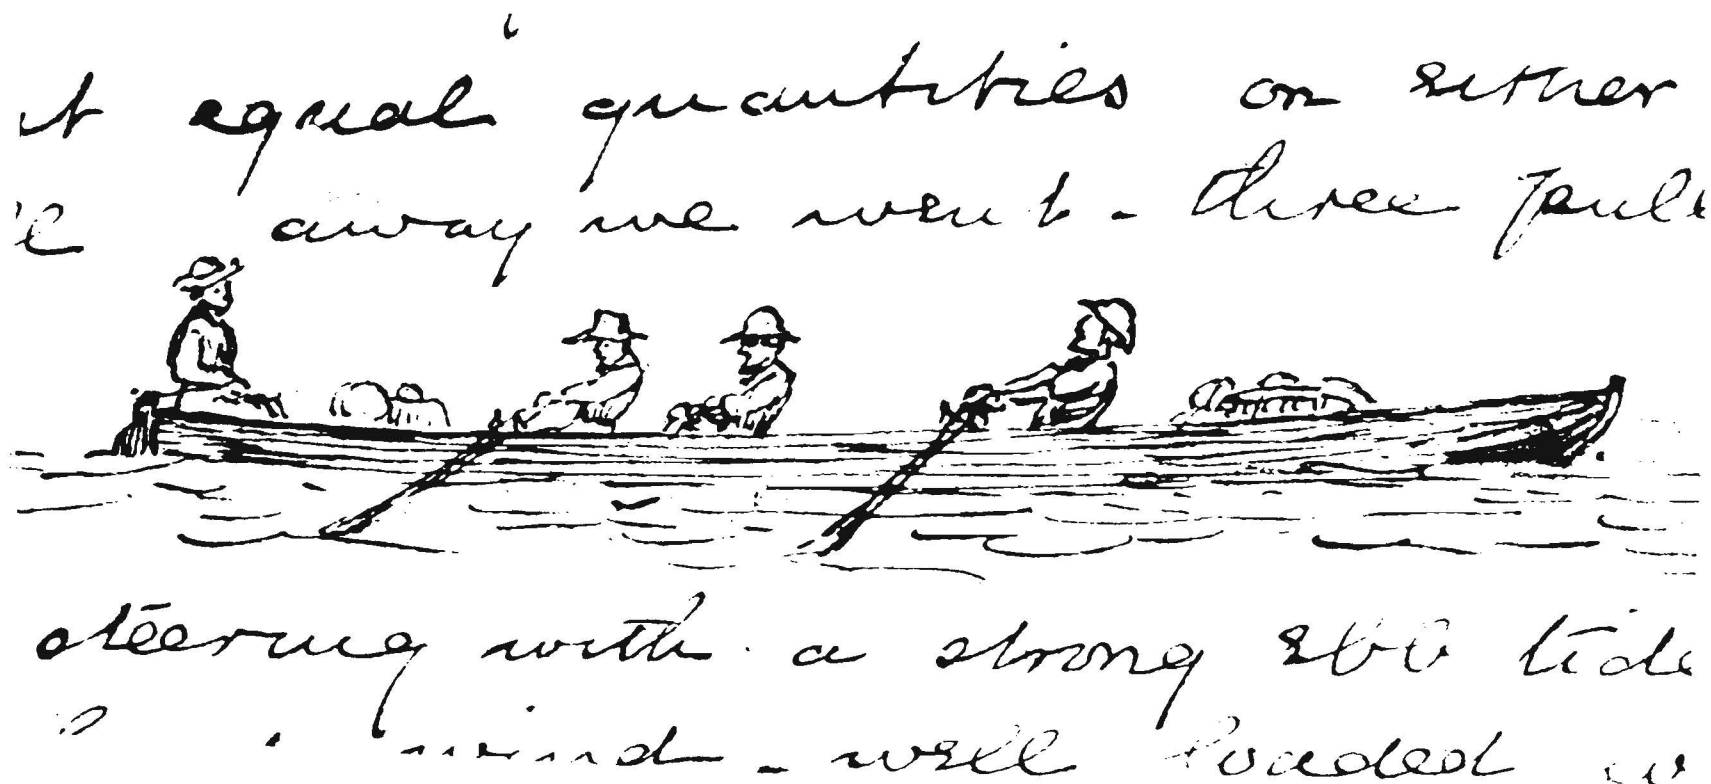 equal quantities on either
away we went - three
steering with a strong ebb tide
wind - well loaded